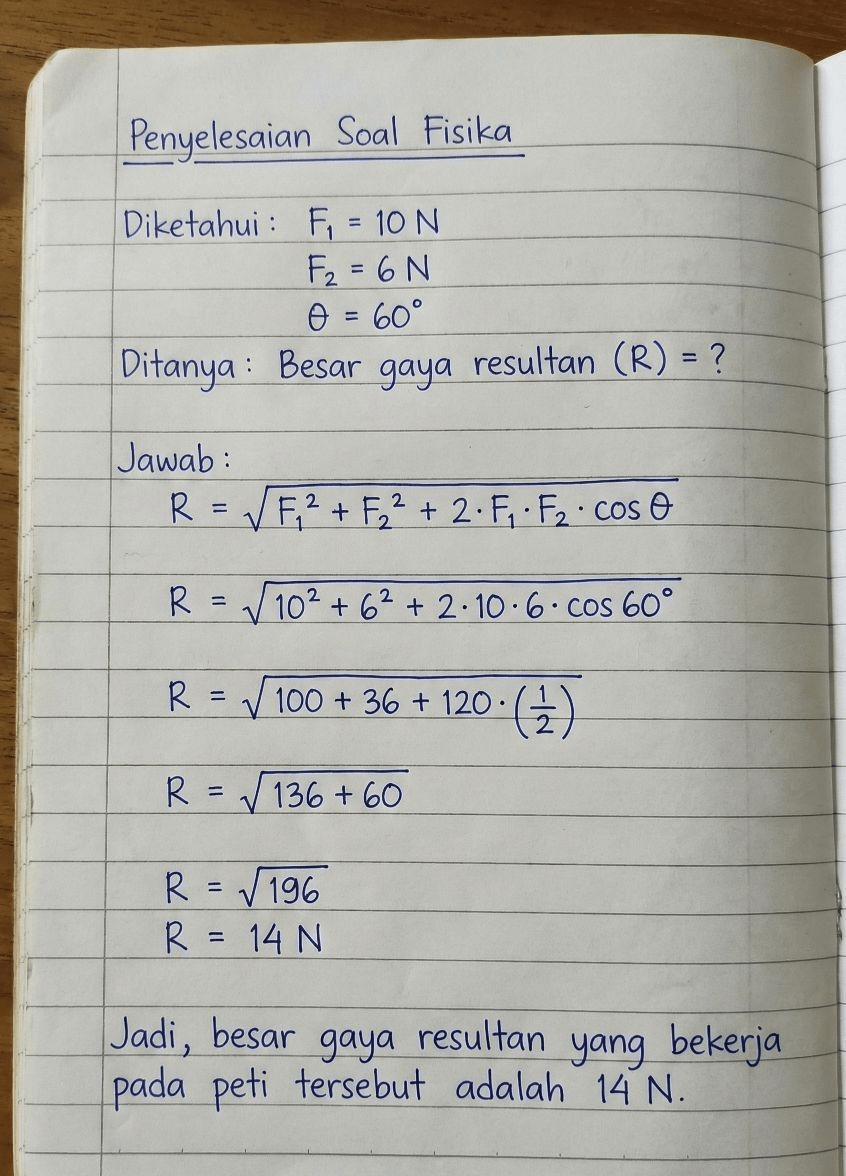 Penyelesaian Soal Fisika
Diketahui : F₁ = 10 N
F₂ = 6 N
θ = 60°
Ditanya : Besar gaya resultan (R) = ?
Jawab :
R = √(F₁² + F₂² + 2 · F₁ · F₂ · cos θ)
R = √(10² + 6² + 2 · 10 · 6 · cos 60°)
R = √(100 + 36 + 120 · (1/2))
R = √(136 + 60)
R = √196
R = 14 N
Jadi, besar gaya resultan yang bekerja
pada peti tersebut adalah 14 N.